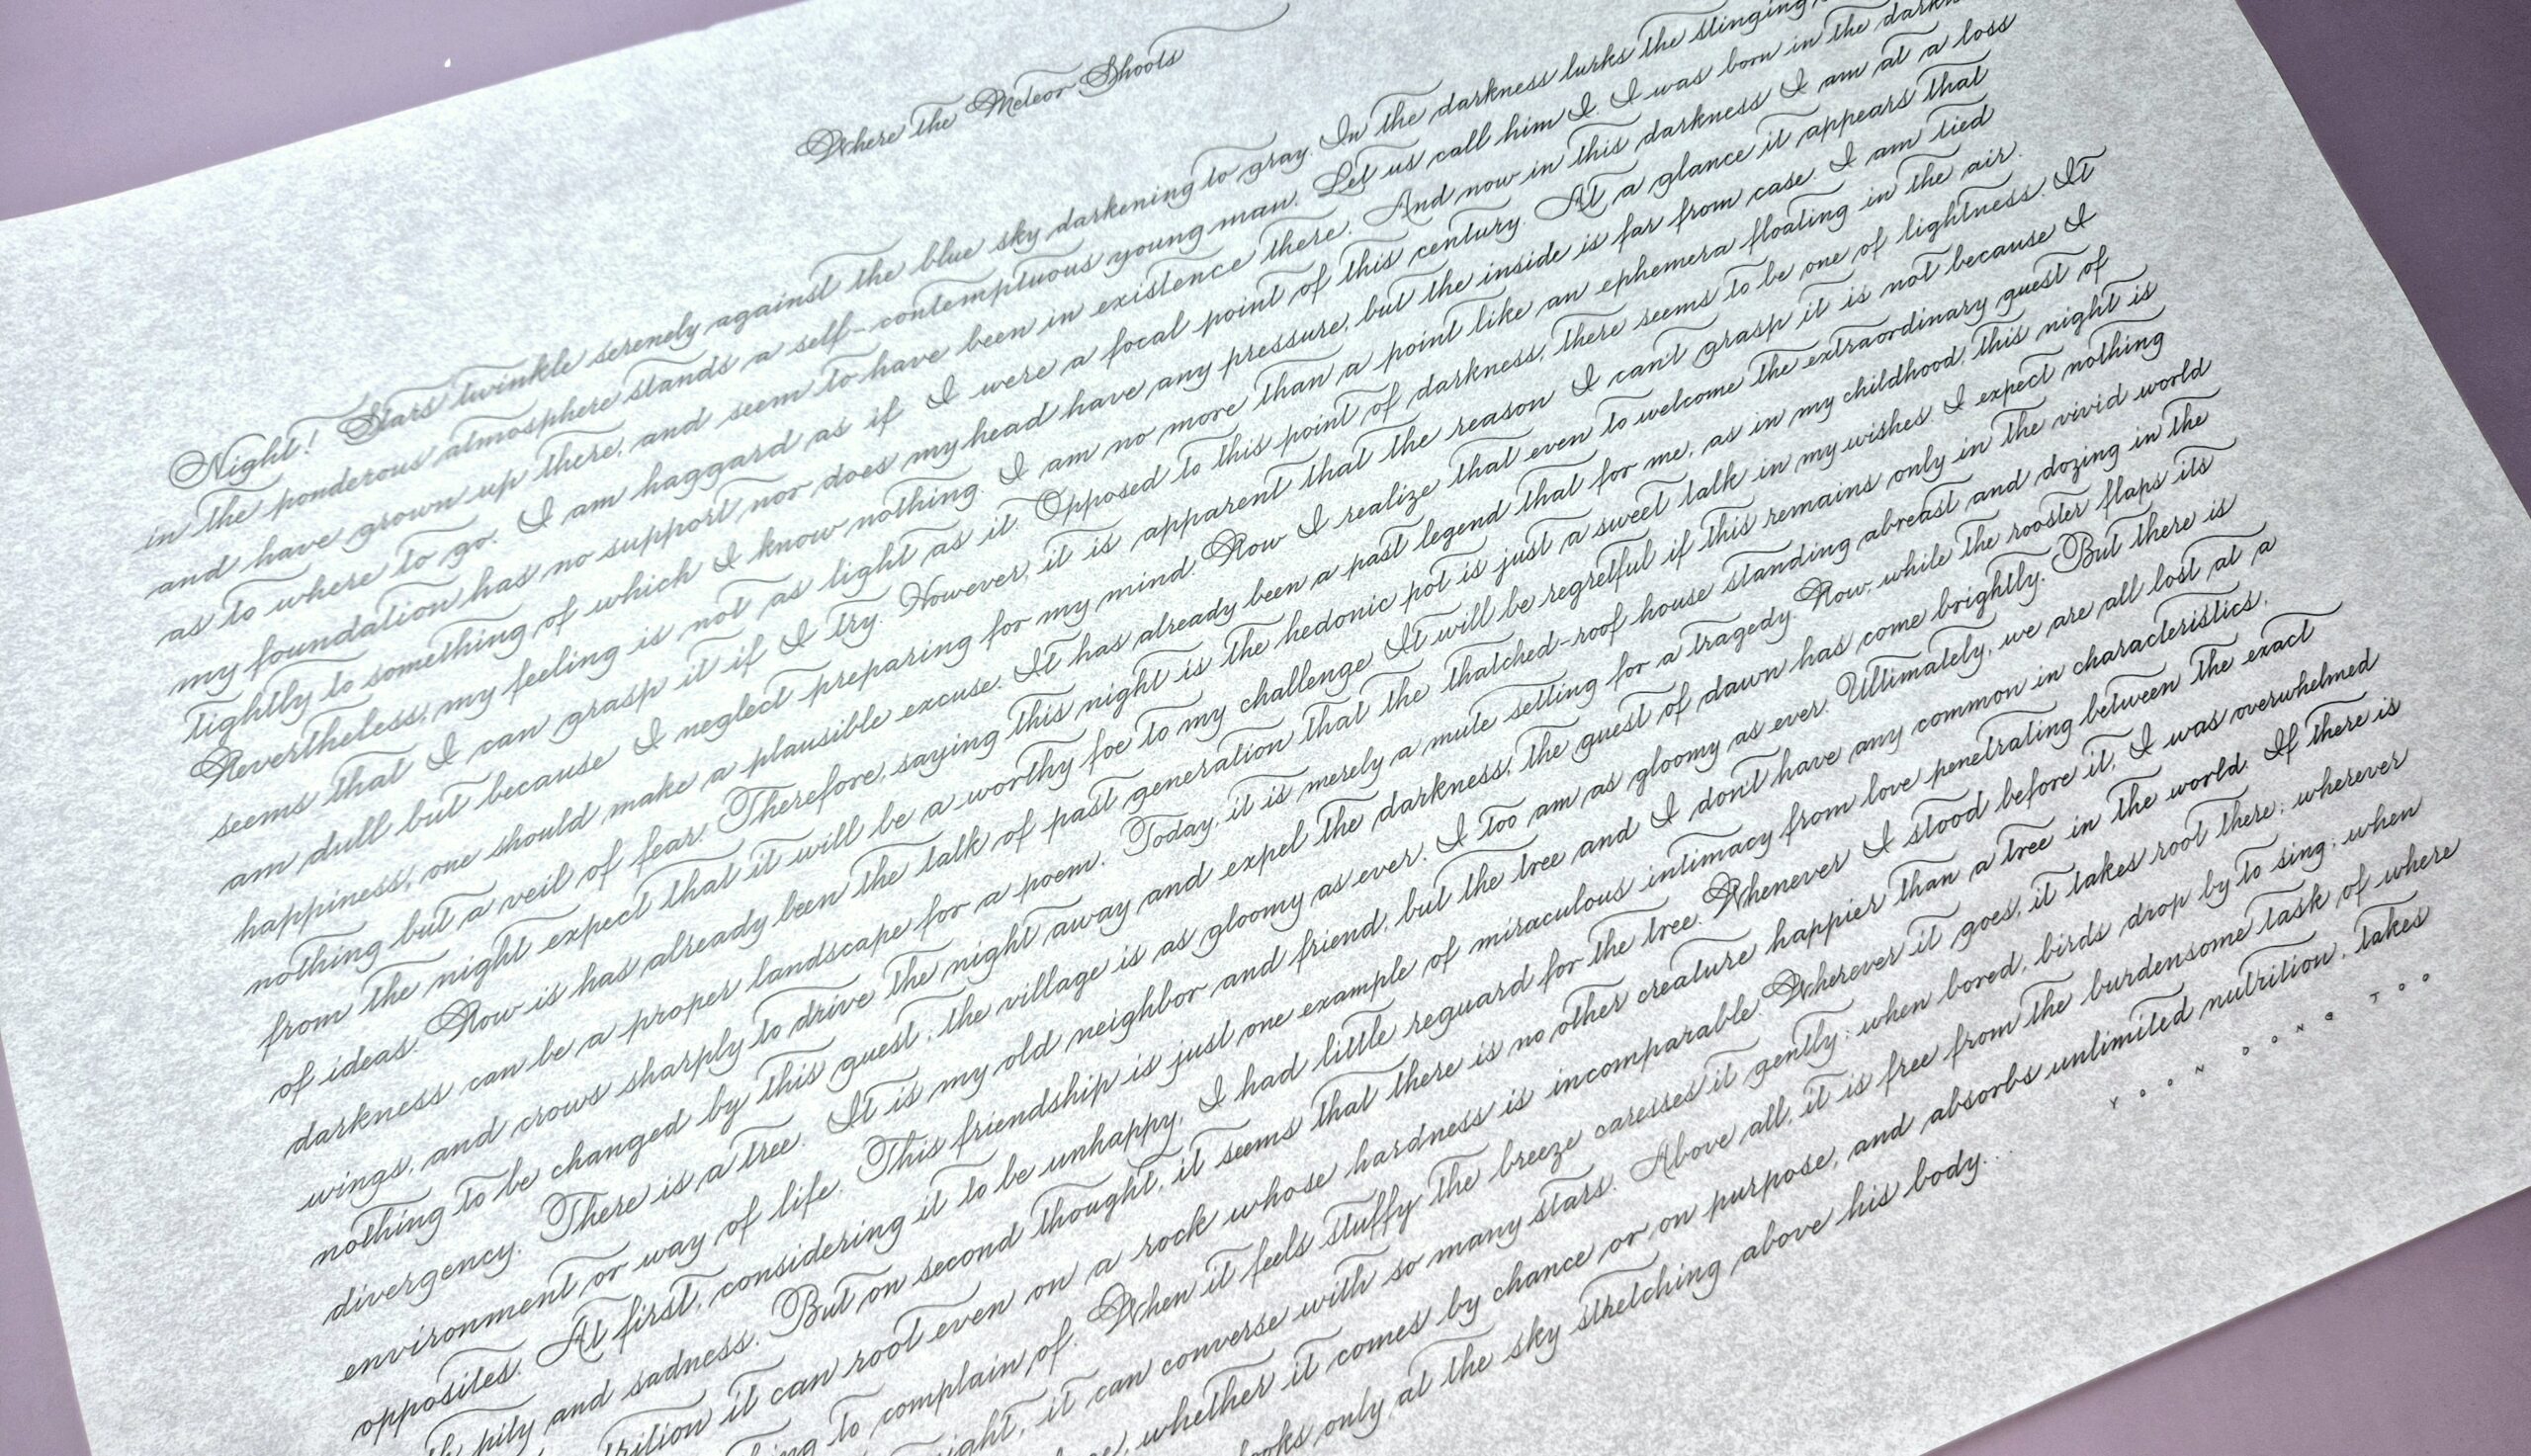 Where the Meteor Shoots
Night! Stars twinkle serenely against the blue sky darkening to gray. In the darkness lurks the stinging
in the ponderous atmosphere stands a self-contemptuous young man. Let us call him I. I was born in the
and have grown up there, and seem to have been in existence there. And now in this darkness I am at a loss
as to where to go. I am haggard as if I were a focal point of this century. At a glance it appears that
my foundation has no support nor does my head have any pressure, but the inside is far from case I am tied
tightly to something of which I know nothing. I am no more than a point like an ephemera floating in the air.
Nevertheless, my feeling is not as light as it. Opposed to this point of darkness, there seems to be one of lightness. It
seems that I can grasp it if I try. However, it is apparent that the reason I can't grasp it is not because I
am dull but because I neglect preparing for my mind. Now I realize that even to welcome the extraordinary guest of
happiness, one should make a plausible excuse. It has already been a past legend that for me, as in my childhood, this night is
nothing but a veil of fear. Therefore, saying this night is the hedonic pot is just a sweet talk in my wishes. I expect nothing
from the night expect that it will be a worthy foe to my challenge. It will be regretful if this remains only in the vivid world
of ideas. Now is has already been the talk of past generation that the thatched-roof house standing abreast and dozing in the
darkness can be a proper landscape for a poem. Today, it is merely a mute setting for a tragedy. Now, while the rooster flaps its
wings, and crows sharply to drive the night away and expel the darkness, the guest of dawn has come brightly. But there is
nothing to be changed by this guest, the village is as gloomy as ever. I too am as gloomy as ever. Ultimately, we are all lost at a
divergency. There is a tree. It is my old neighbor and friend, but the tree and I don't have any common in characteristics,
environment or way of life. This friendship is just one example of miraculous intimacy from love penetrating between the exact
opposites. At first, considering it to be unhappy, I had little reguard for the tree. Whenever I stood before it, I was overwhelmed
pity and sadness. But on second thought, it seems that there is no other creature happier than a tree in the world. If there is
it can root even on a rock whose hardness is incomparable. Wherever it goes, it takes root there; wherever
to complain of. When it feels stuffy the breeze caresses it gently; when bored, birds drop by to sing; when
it can converse with so many stars. Above all, it is free from the burdensome task of where
whether it comes by chance or on purpose, and absorbs unlimited nutrition, takes
only at the sky stretching above his body...
YOON DONG JOO